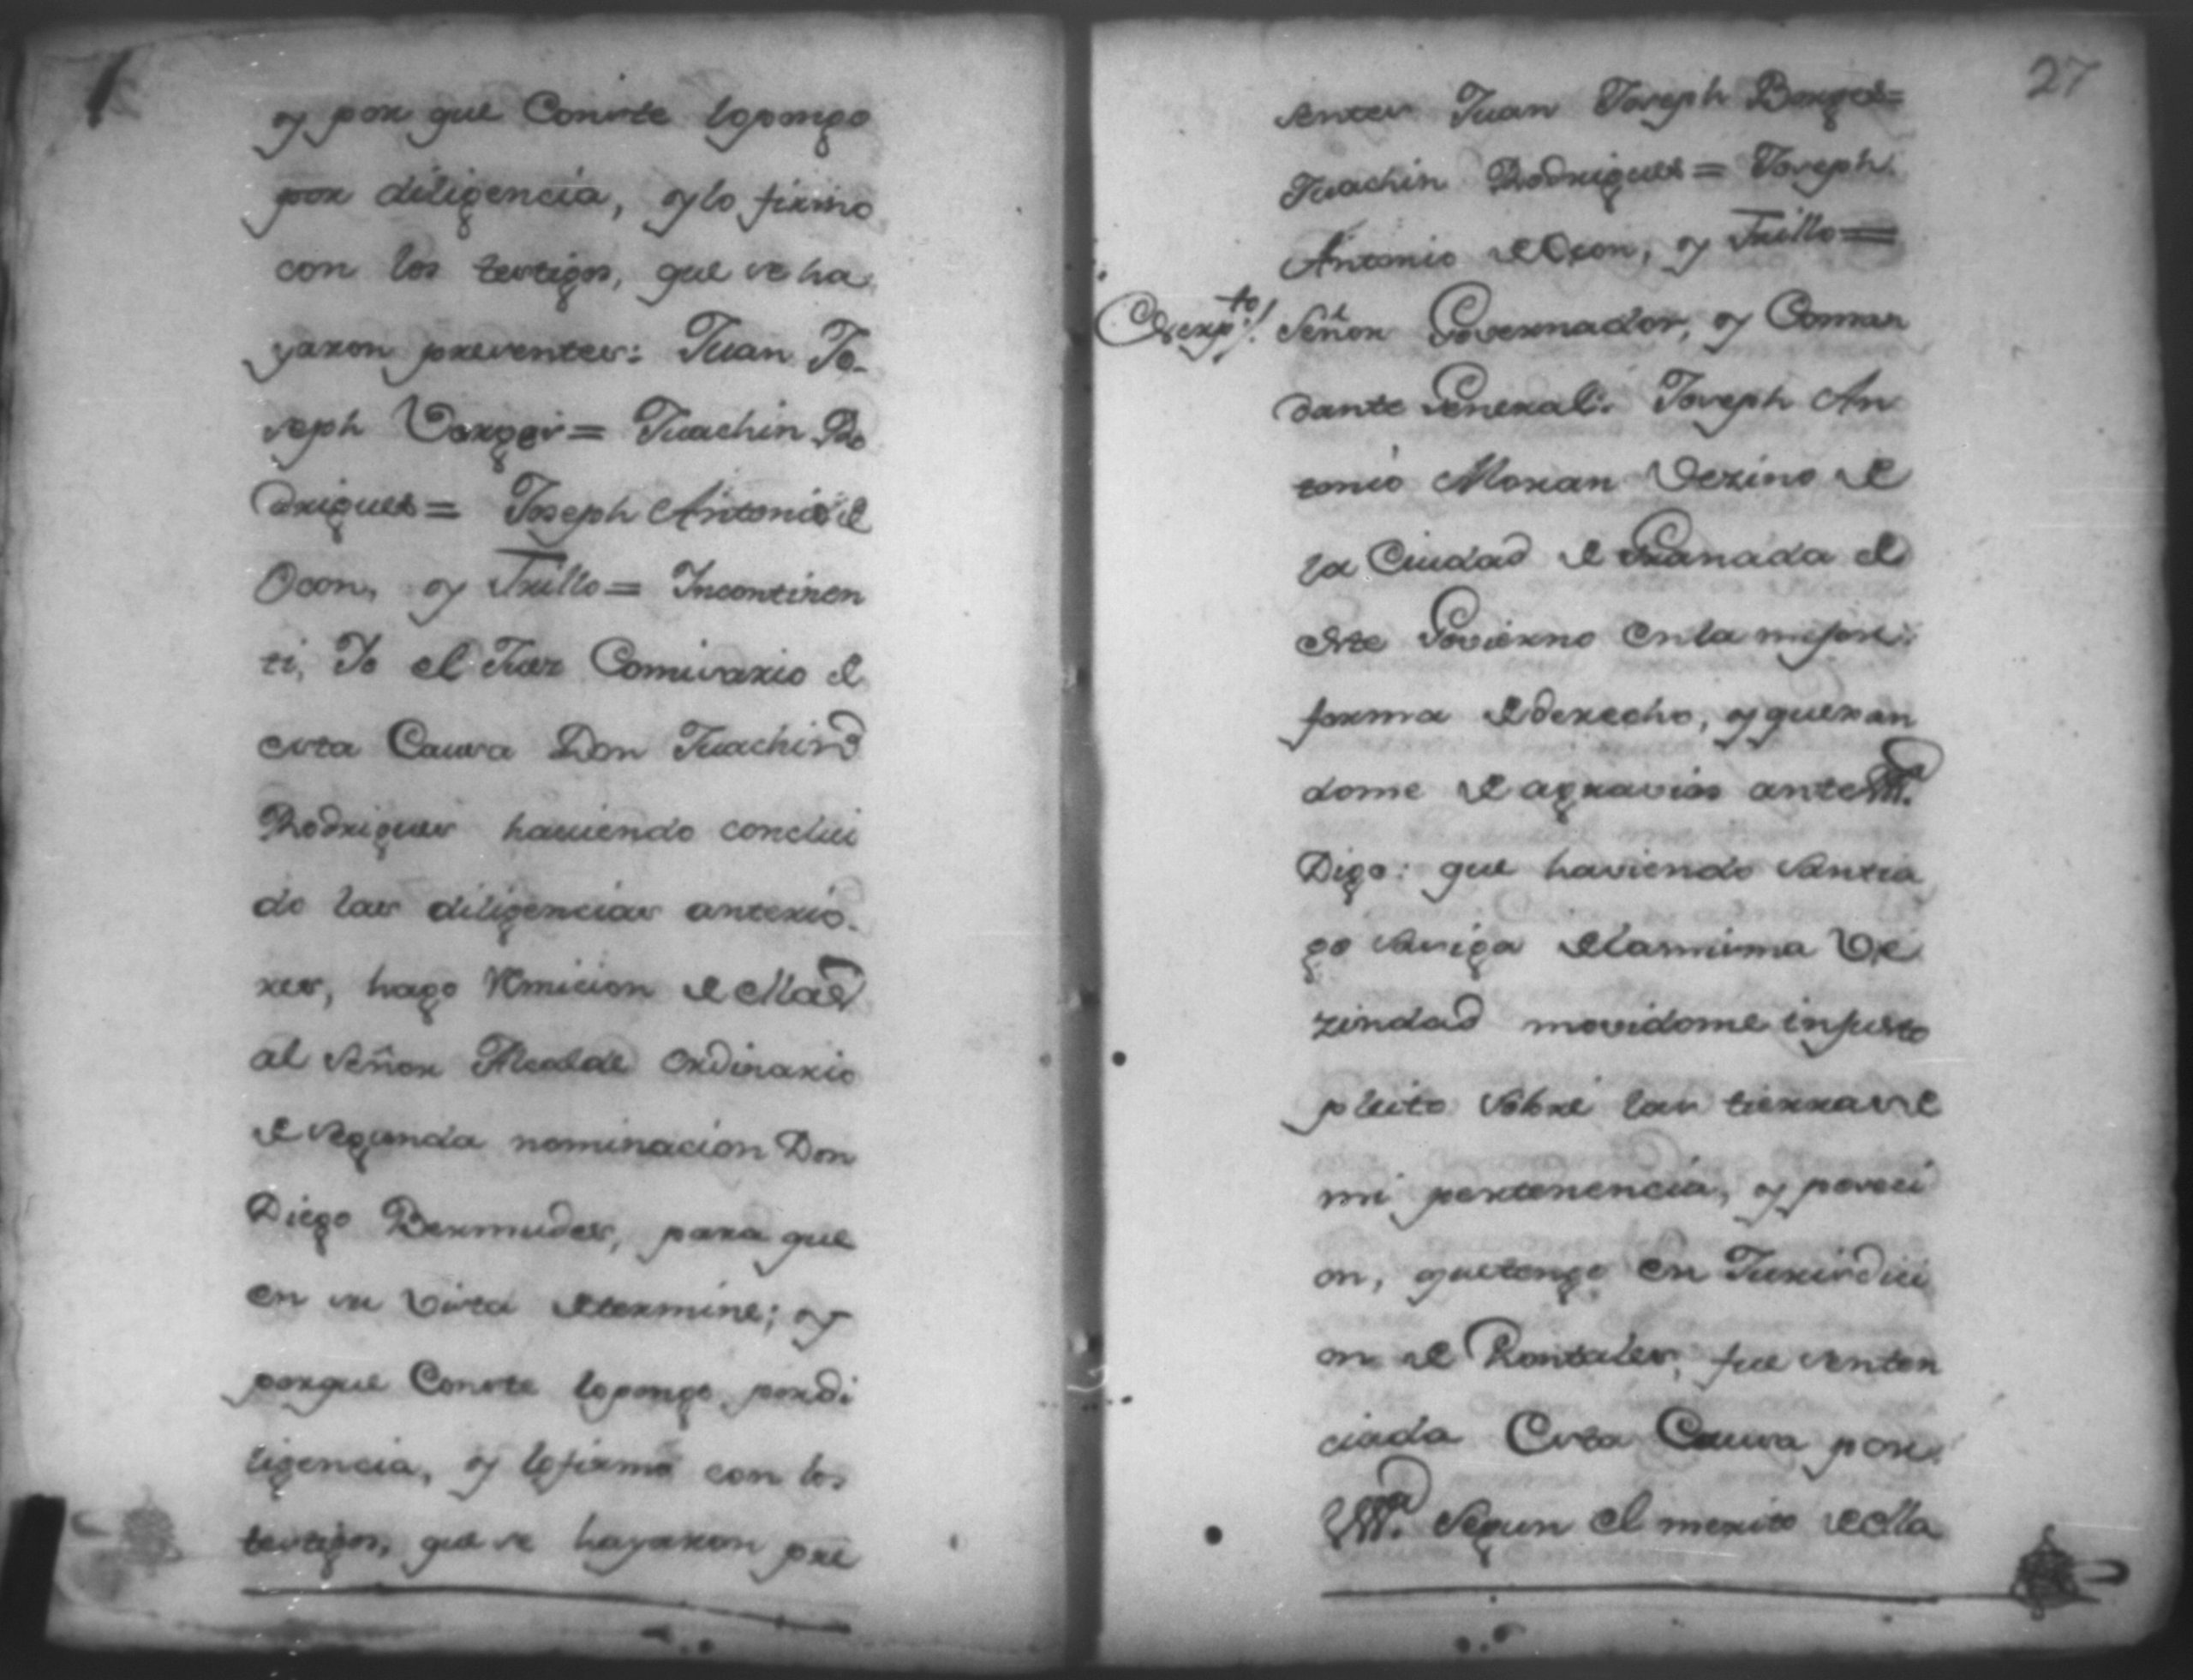 y por que Conste lopongo
por diligencia, ylo firmo
con los testigos, que se ha
yaron presentes: Juan Jo-
seph Vargas = Juachin Ro
drigues = Joseph Antonio de
Ocon, y Trillo = Incontinen
ti, Yo el Juez Comisario de
esta Causa Don Juachin
Rodrigues haviendo conclui
do las diligencias anterio-
res, hago Remicion de ellas
al Señor Alcalde Ordinario
de segunda nominacion Don
Diego Bermudes, para que
en su Vista determine; y
porque Conste lopongo pordi
ligencia, y lofirmo con los
testigos, que se hayaron pre
27
sentes Juan Joseph Borges =
Juachin Rodrigues = Joseph
Antonio de Ocon, y Trillo =
Escrip.to/. Señor Governador, y Coman
dante General: Joseph An
tonio Moran Vezino de
la Ciudad de Granada de
este Govierno en la mejor
forma de derecho, y quexan
dome de agravios ante Vm.d
Digo: que haviendo Santia
go de la misma Ve
zindad movidome injusto
pleito sobre las tierras de
mi pertenencia, y poseci
on, que tengo en Jurisdici
on de Chontales, fue senten
ciada Esta Causa por
Vm.d Segun el merito de ella